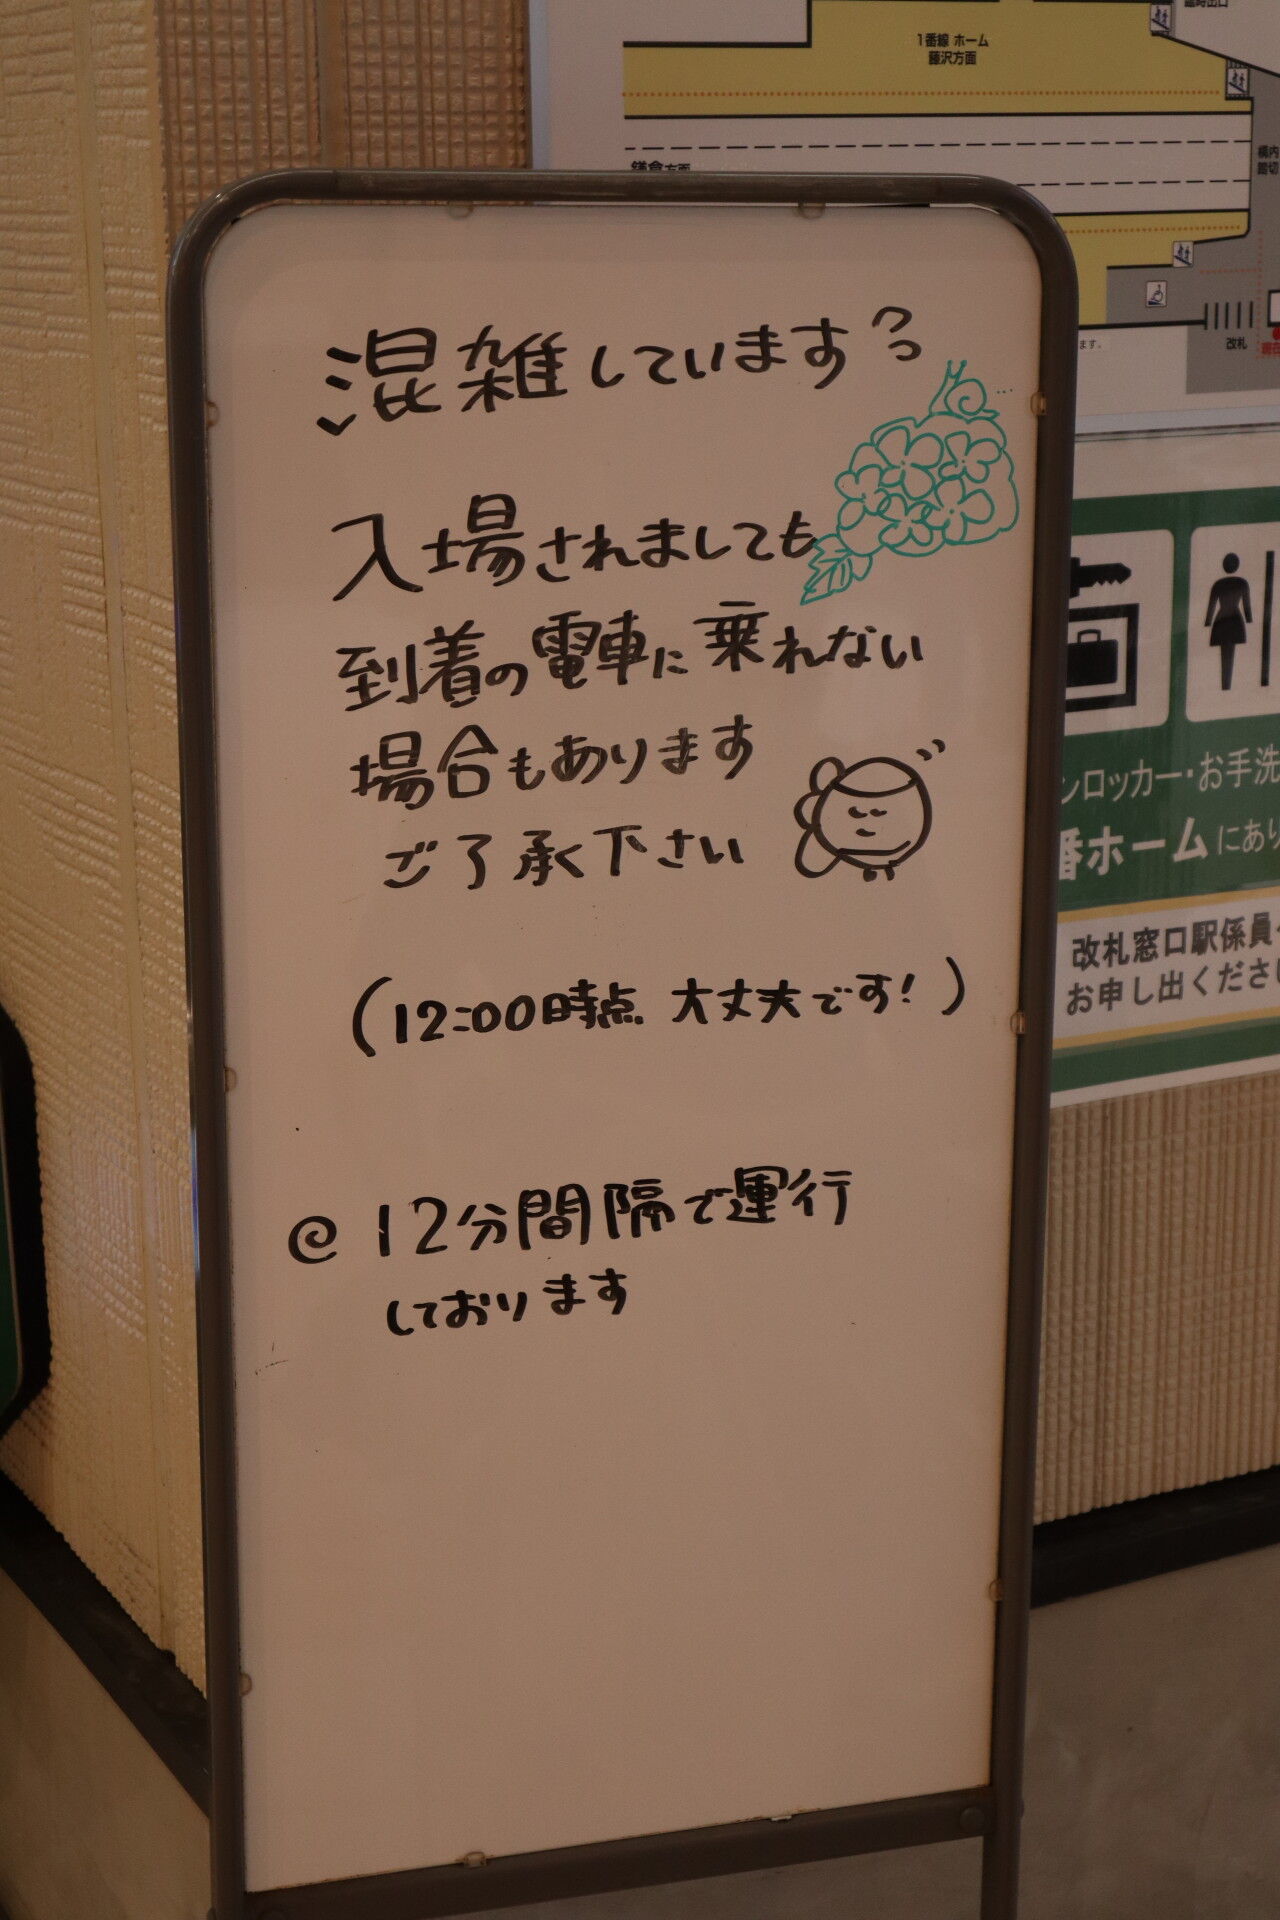 臨時出口
1番線 ホーム
藤沢方面
鎌倉方面
構内
踏切
改札
ます。
混雑しています
入場されましても
到着の電車に乗れない
場合もあります
ご了承下さい
(12:00時点 大丈夫です!)
@ 12分間隔で運行
しております
ンロッカー・お手洗
番ホームにあり
改札窓口駅係員へ
お申し出ください